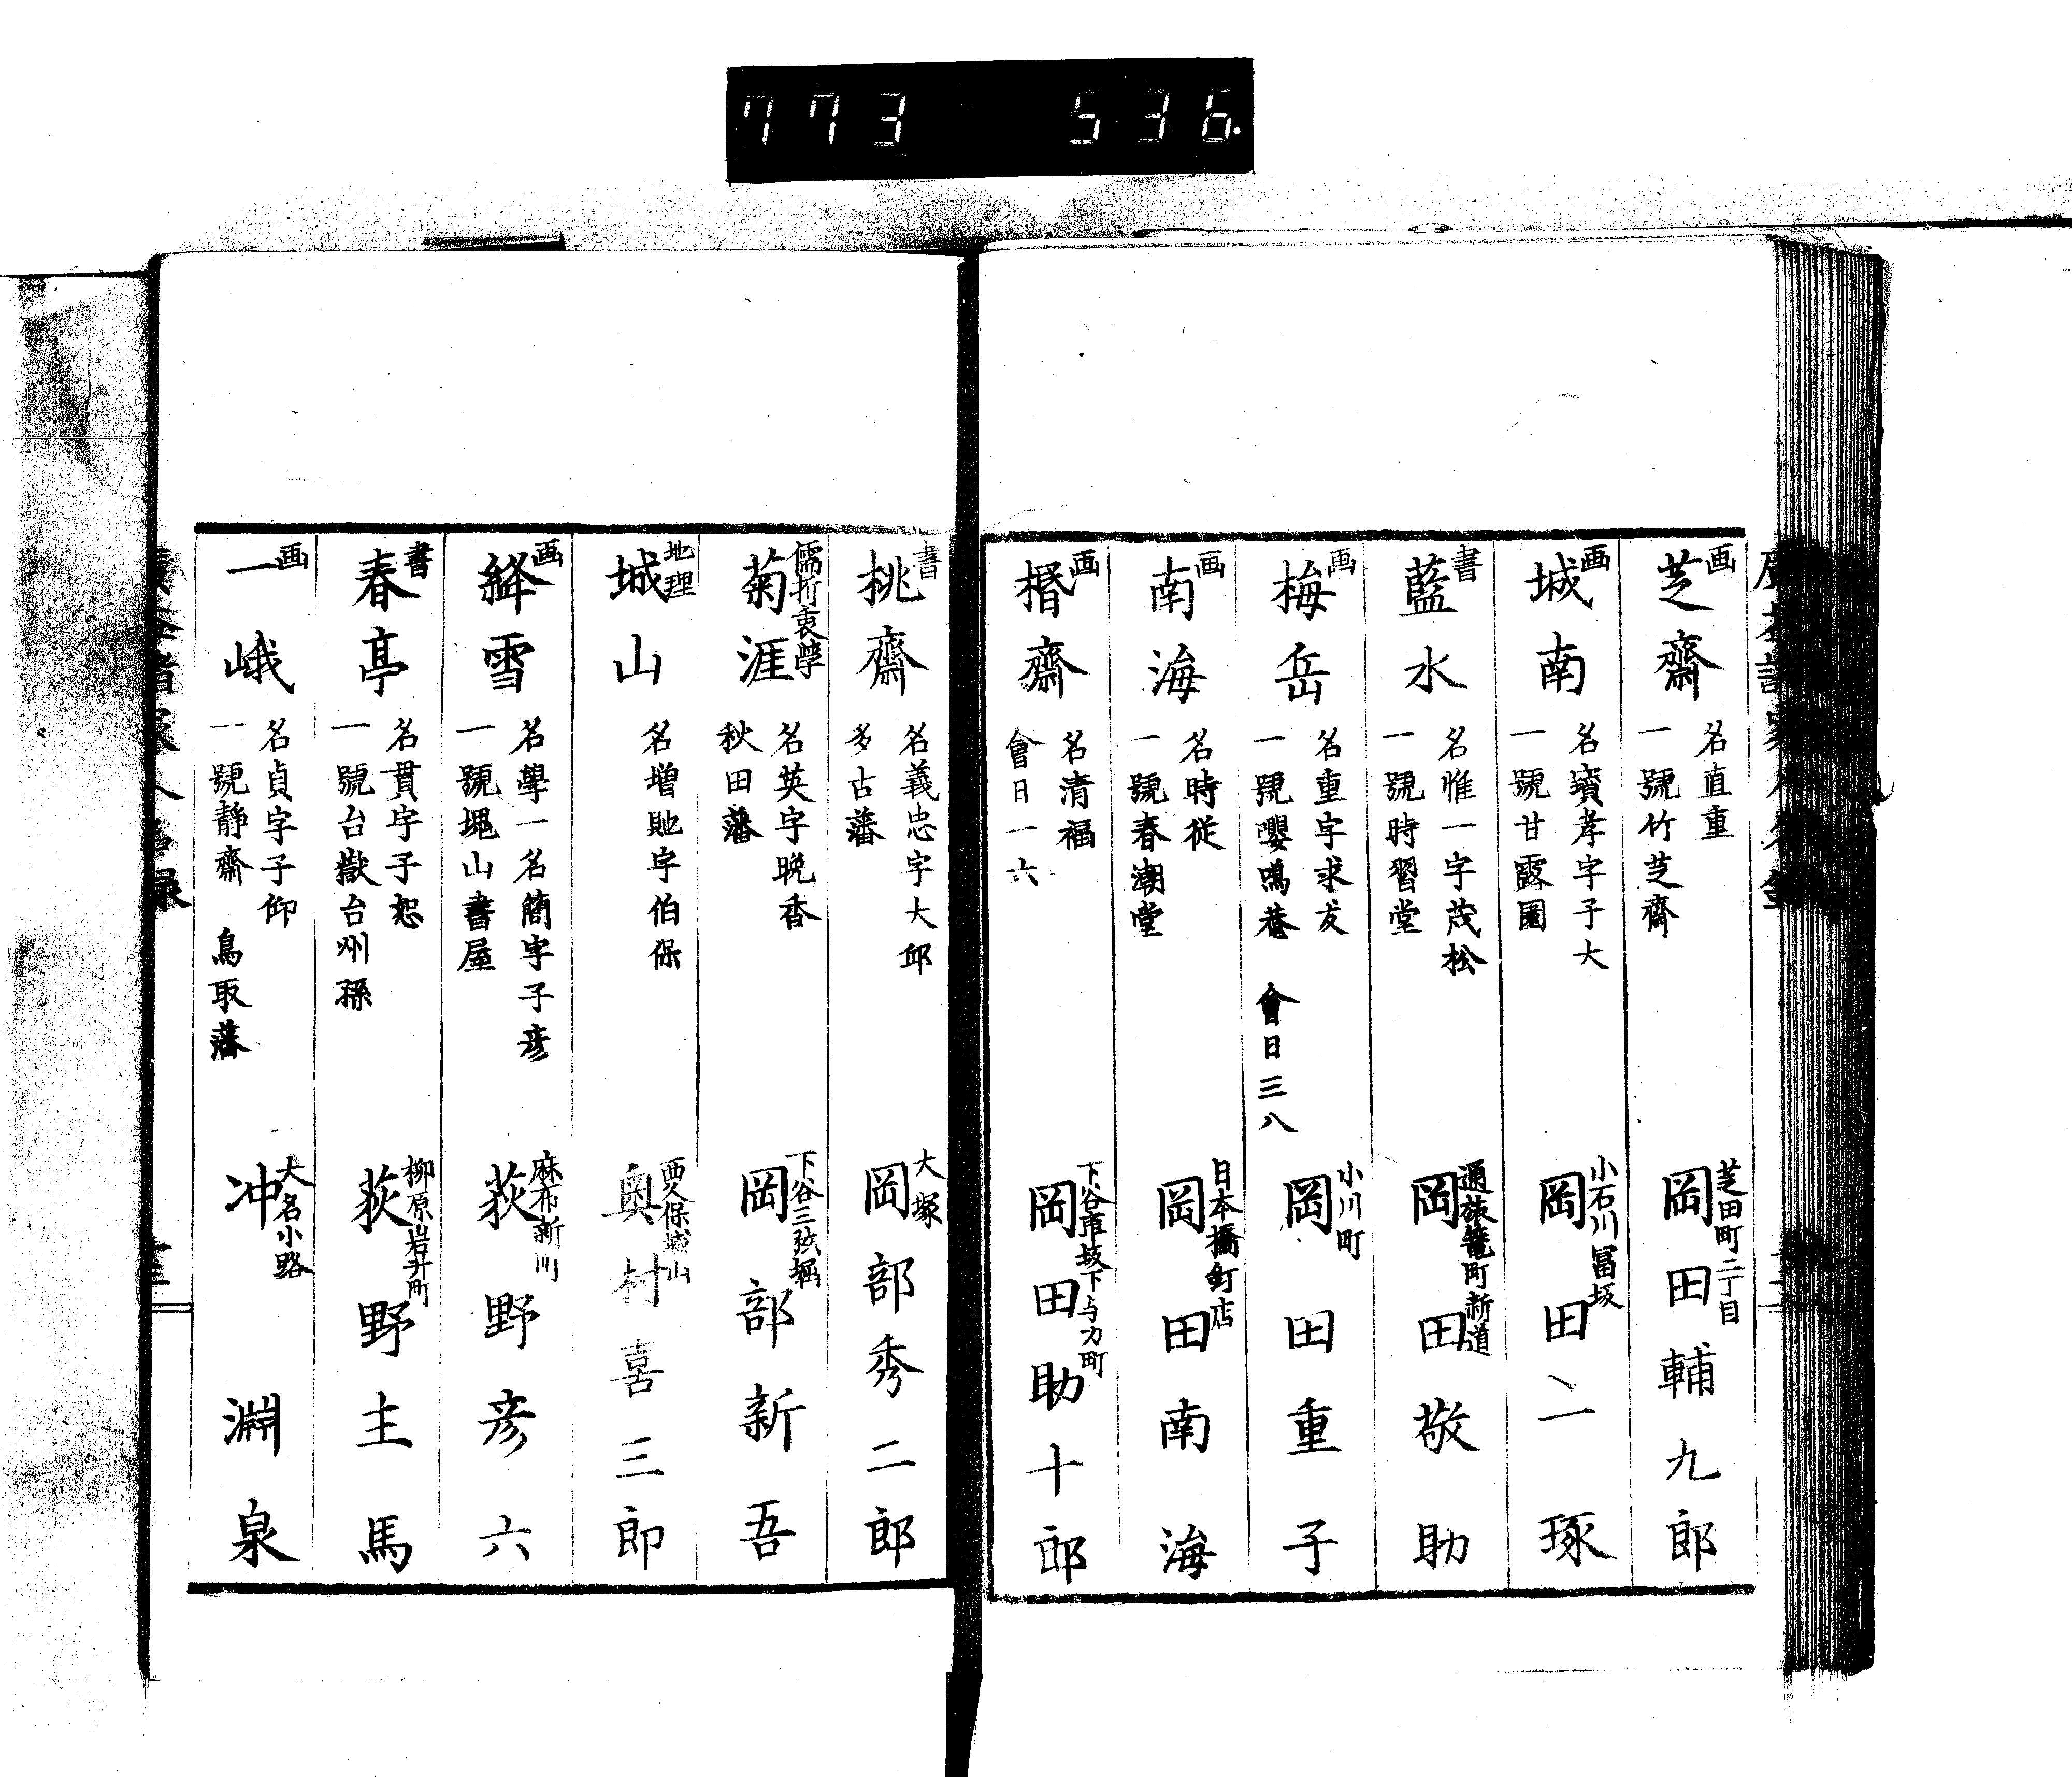 773 536.
画
芝齋
名直重
一號竹芝齋
芝田町二丁目
岡田輔九郎
画
城南
名孝字子大
一號甘露園
小石川冨坂
岡田一琢
書
藍水
名惟一字茂松
一號時習堂
通旅篭町新道
岡田敬助
画
梅岳
名重字求友
一號嚶鳴巷 會日三八
小川町
岡田重子
画
南海
名時従
一號春潮堂
日本橋釘店
岡田南海
画
榗齋
名清福
會日一六
下谷車坂下与力町
岡田助十郎
書
桃齋
名義忠字大邱
多古藩
大塚
岡部秀二郎
儒折衷學
菊涯
名英字晩香
秋田藩
下谷三弦堀
岡部新吾
地理
城山
名増字伯保
西久保城山
奥村喜三郎
画
絳雪
名學一名簡字子彦
一號塊山書屋
麻布新川
荻野彦六
書
春亭
名貫字子恕
一號台嶽台州孫
柳原岩井町
荻野主馬
画
一峨
名貞字子仰
一號靜齋 鳥取藩
大名小路
冲淵泉